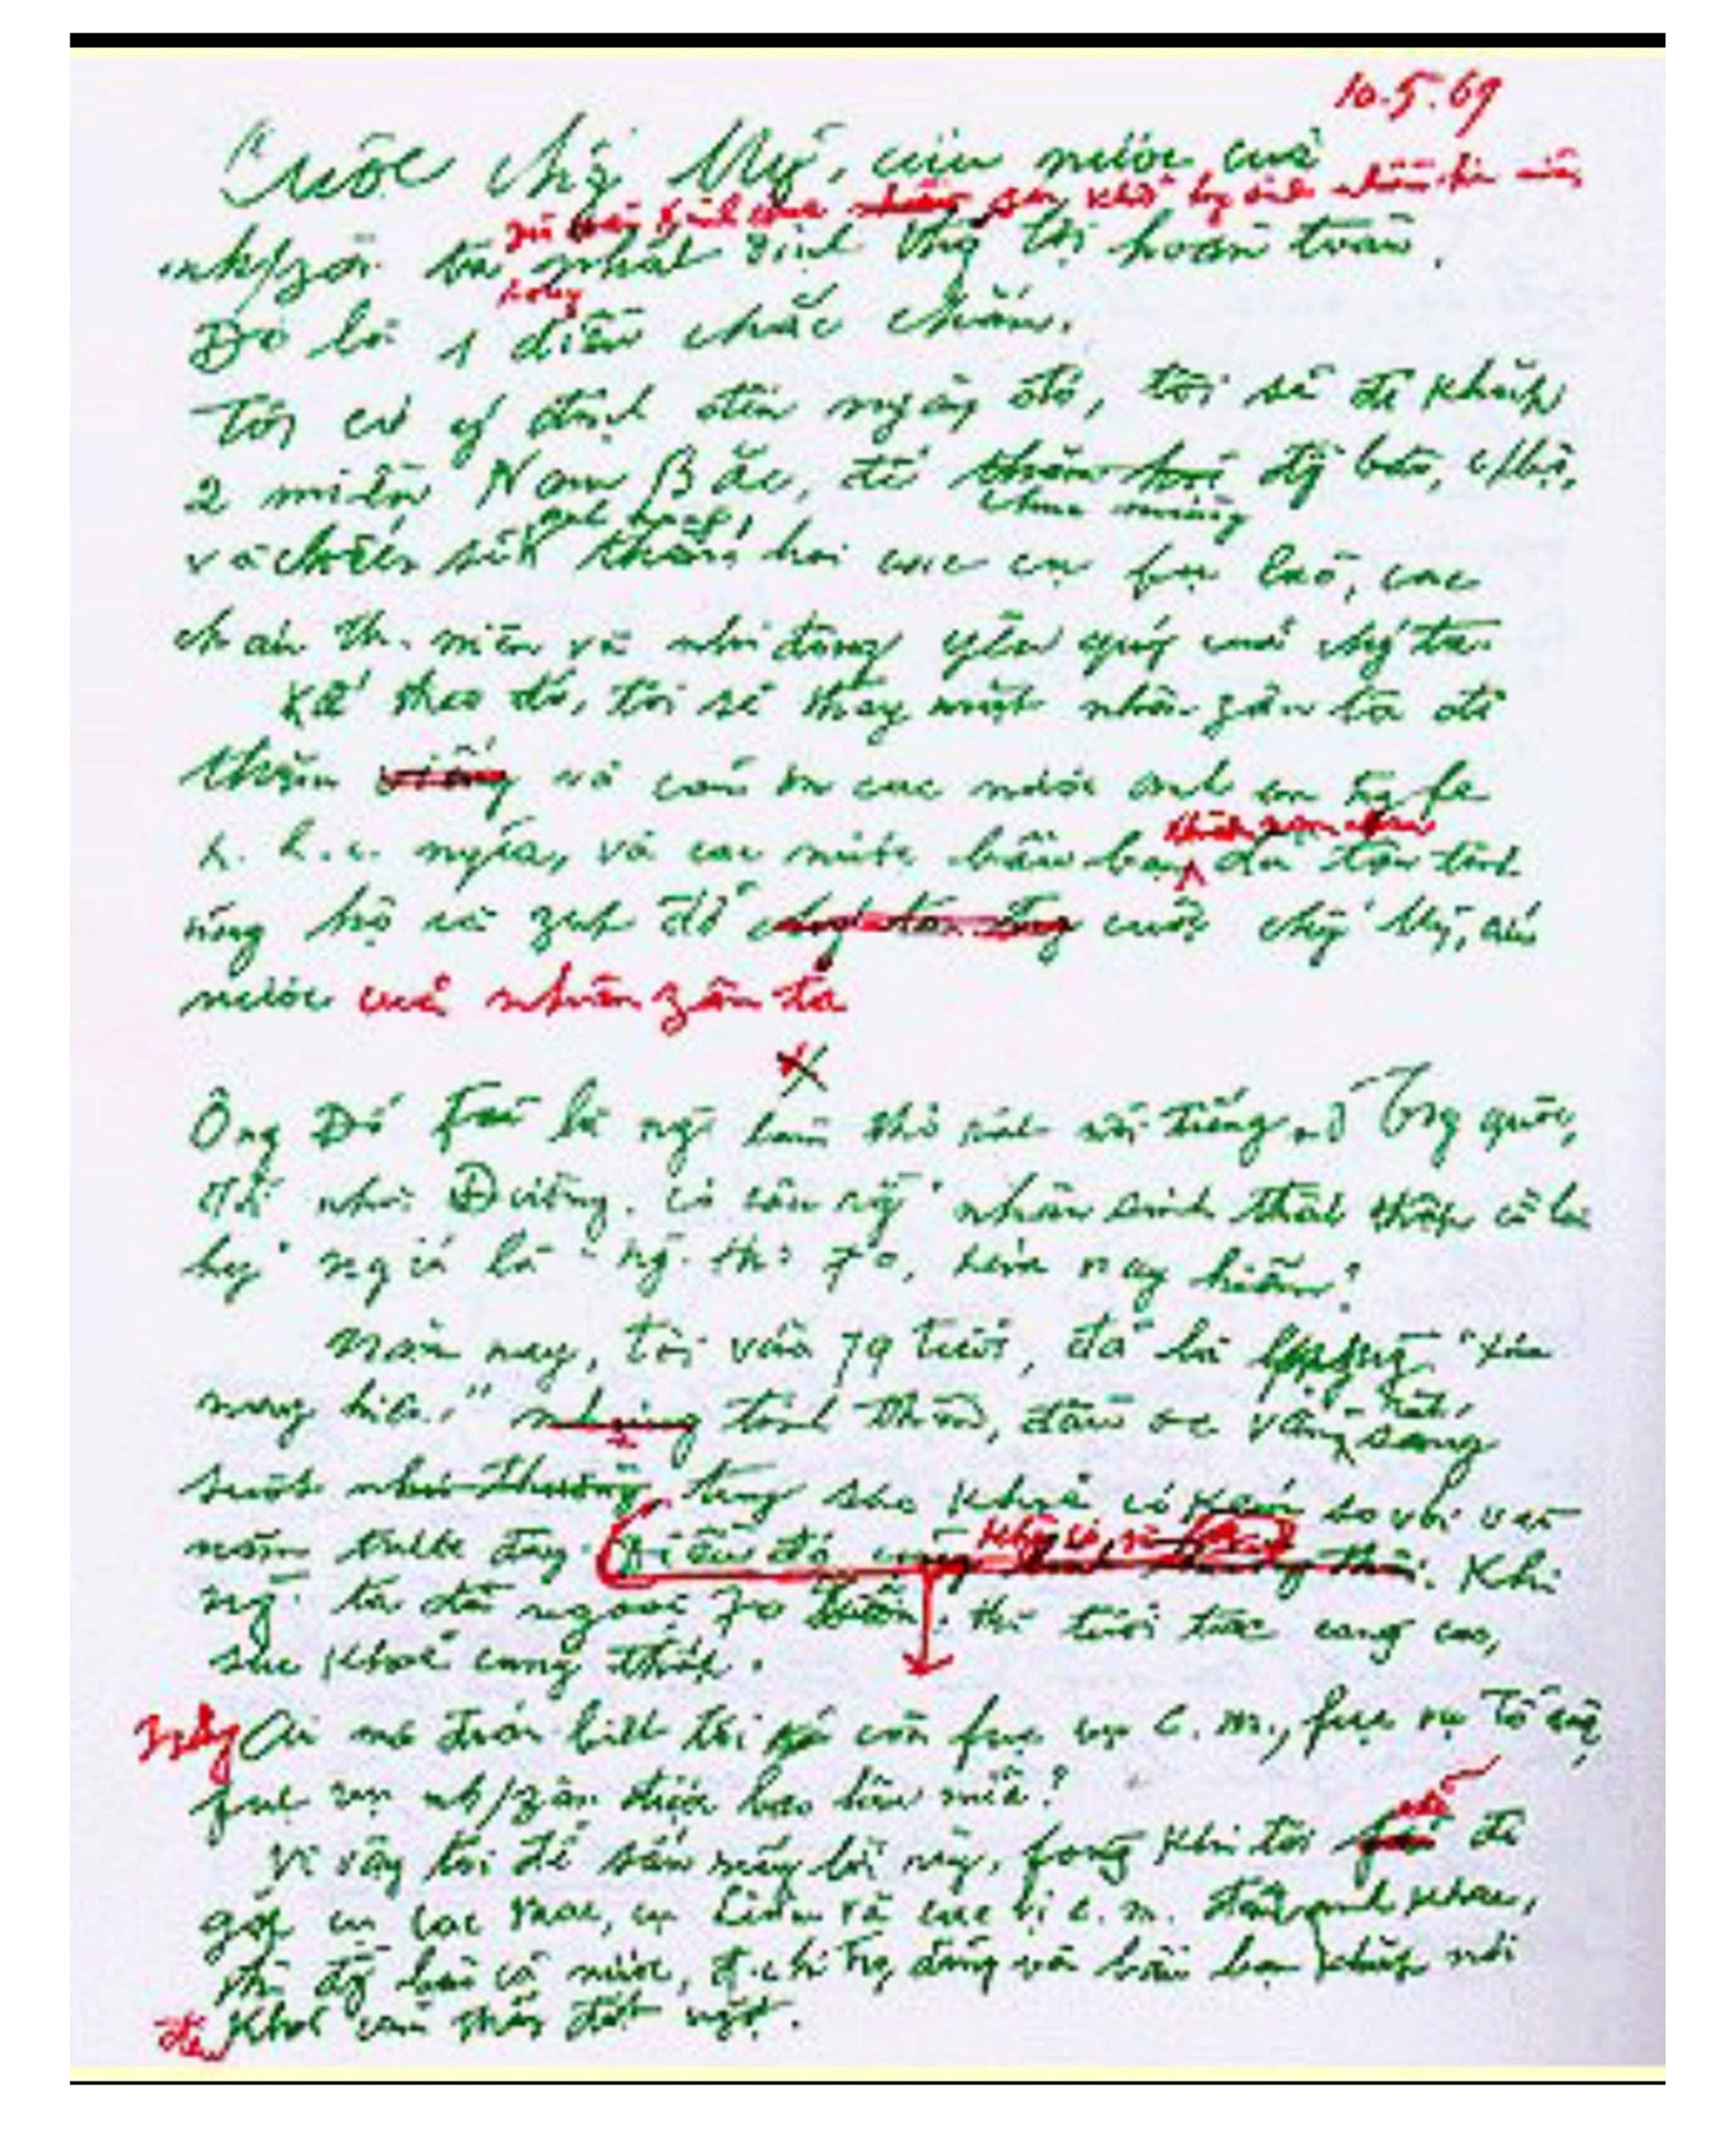 10.5.69
Cuộc chố́ng Mỹ, cứu nước của
dù fải kinh qua gian khổ hy sinh nhiều hơn nữa,
nh/zân ta nhất định thắng lợi hoàn toàn.
Đó là 1 điều chắc chắn.
Tôi có ý định đến ngày đó, tôi sẽ đi khắp
2 miền Nam Bắc, để thăm hỏi đ bào, c/bộ,
chúc mừng
anh hùng,
và chiến sĩ thăm hỏi các cụ fụ lão, các
cháu th. niên và nhi đồng yêu quý của ta.
Kế theo đó, tôi sẽ thay mặt nhân zân ta đi
thăm và cảm ơn các nước anh em trong fe
x. h. c. nghĩa, và các nước bầu bạn đã tận tình
khắp năm châu
ủng hộ và zúp đỡ cuộc chống Mỹ, cứu
nước của nhân zân ta
Ông Đỗ Fủ là ng làm thơ rất nổi tiếng ở Trg quốc,
đời nhà Đường. Có câu rằng "nhân sinh thất thập cổ lai
hy" nghĩa là "ng. thọ 70, xưa nay hiếm".
Năm nay, tôi vừa 79 tuổi, đã là "xưa
nay hiếm" tinh thần, đầu óc vẫn sáng
rất
suốt như thường tuy sức khoẻ có kém so với vài
năm trước đây. Điều đó cũng không có gì lạ. Khi
ng. ta đã ngoài 70 xuân, thì tuổi tác càng cao,
sức khoẻ càng thấp.
Nhưng Ai mà đoán biết tôi còn fục vụ c. m., fục vụ Tổ quốc,
fục vụ nh/zân được bao lâu nữa?
Vì vậy tôi để sẵn mấy lời này, fòng khi tôi sẽ đi
gặp cụ Các Mác, cụ Lênin và các vị c. m. đàn anh khác,
thì đ bào cả nước, đ. chí trong đảng và bầu bạn khắp nơi
đều khỏi cảm thấy đột ngột.